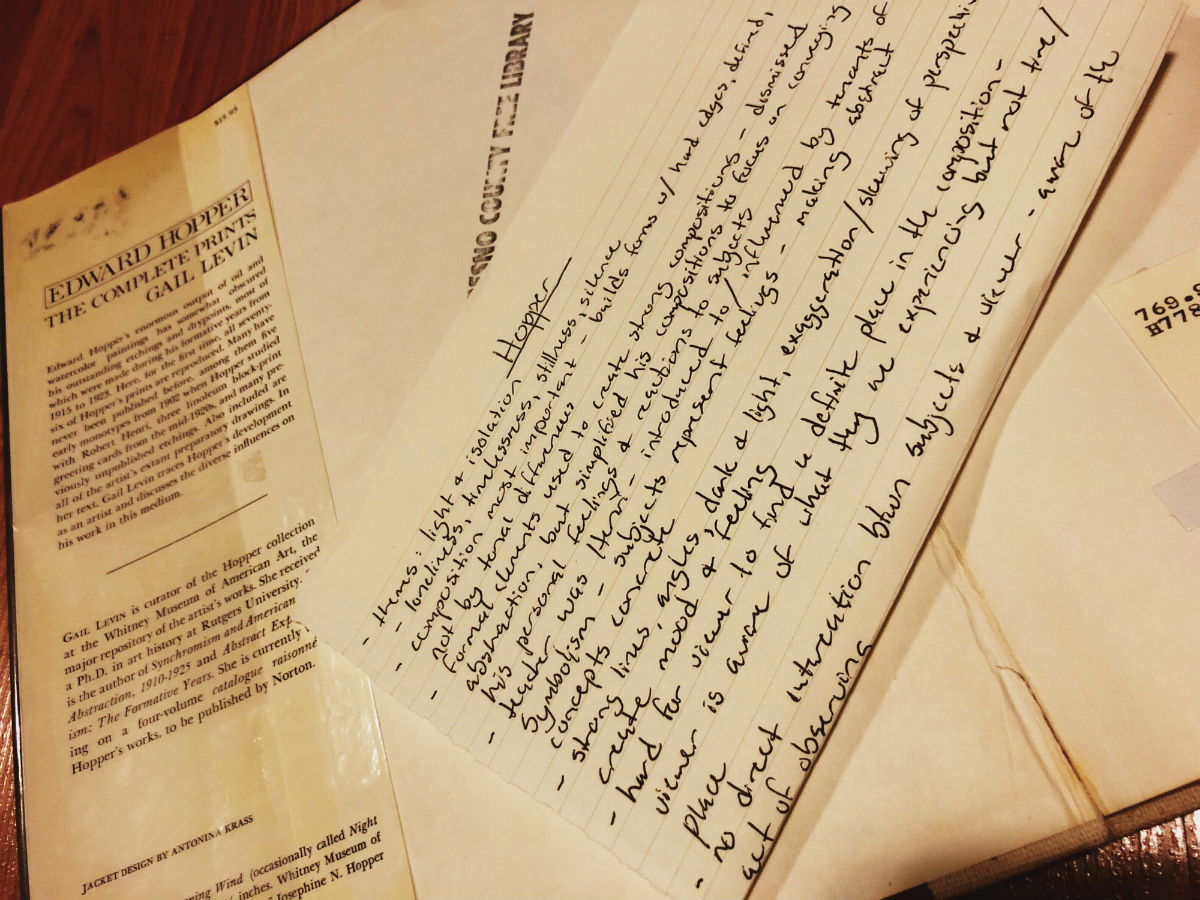 $19.95
EDWARD HOPPER
THE COMPLETE PRINTS
GAIL LEVIN
Edward Hopper's enormous output of oil and
watercolor paintings has somewhat obscured
his outstanding etchings and drypoints, most of
which were made during his formative years from
1915 to 1925. Here, for the first time, all seventy-
six of Hopper's prints are reproduced. Many have
never been published before, among them five
early monotypes from 1902 when Hopper studied
with Robert Henri, three linoleum block-print
greeting cards from the mid-1920s, and many pre-
viously unpublished etchings. Also included are
all of the artist's extant preparatory drawings. In
her text, Gail Levin traces Hopper's development
as an artist and discusses the diverse influences on
his work in this medium.
GAIL LEVIN is curator of the Hopper collection
at the Whitney Museum of American Art, the
major repository of the artist's works. She received
a Ph.D. in art history at Rutgers University.
is the author of Synchromism and American
Abstraction, 1910-1925 and Abstract Exp
ism: The Formative Years. She is currently
ing on a four-volume catalogue raisonné
Hopper's works, to be published by Norton.
JACKET DESIGN BY ANTONINA KRASS
ning Wind (occasionally called Night
inches. Whitney Museum of
Josephine N. Hopper
ESNO COUNTY FREE LIBRARY
Hopper
- themes: light & isolation
- loneliness, timelessness, stillness, silence
- composition most important - builds forms w/ hard edges, defined,
not by tonal differences
- formal elements used to create strong compositions - dismissed
abstraction, but simplified his compositions to focus on conveying
his personal feelings & reactions to subjects
- teacher was Henri - introduced to/influenced by tenants of
Symbolism - subjects represent feelings - making abstract
concepts concrete
- strong lines, angles, dark & light, exaggeration/skewing of perspective
create mood & feeling
- hard for viewer to find a definite place in the composition -
viewer is aware of what they are experiencing but not time/
place
- no direct interaction btwn subjects & viewer - aware of the
act of observing
769.9
H778